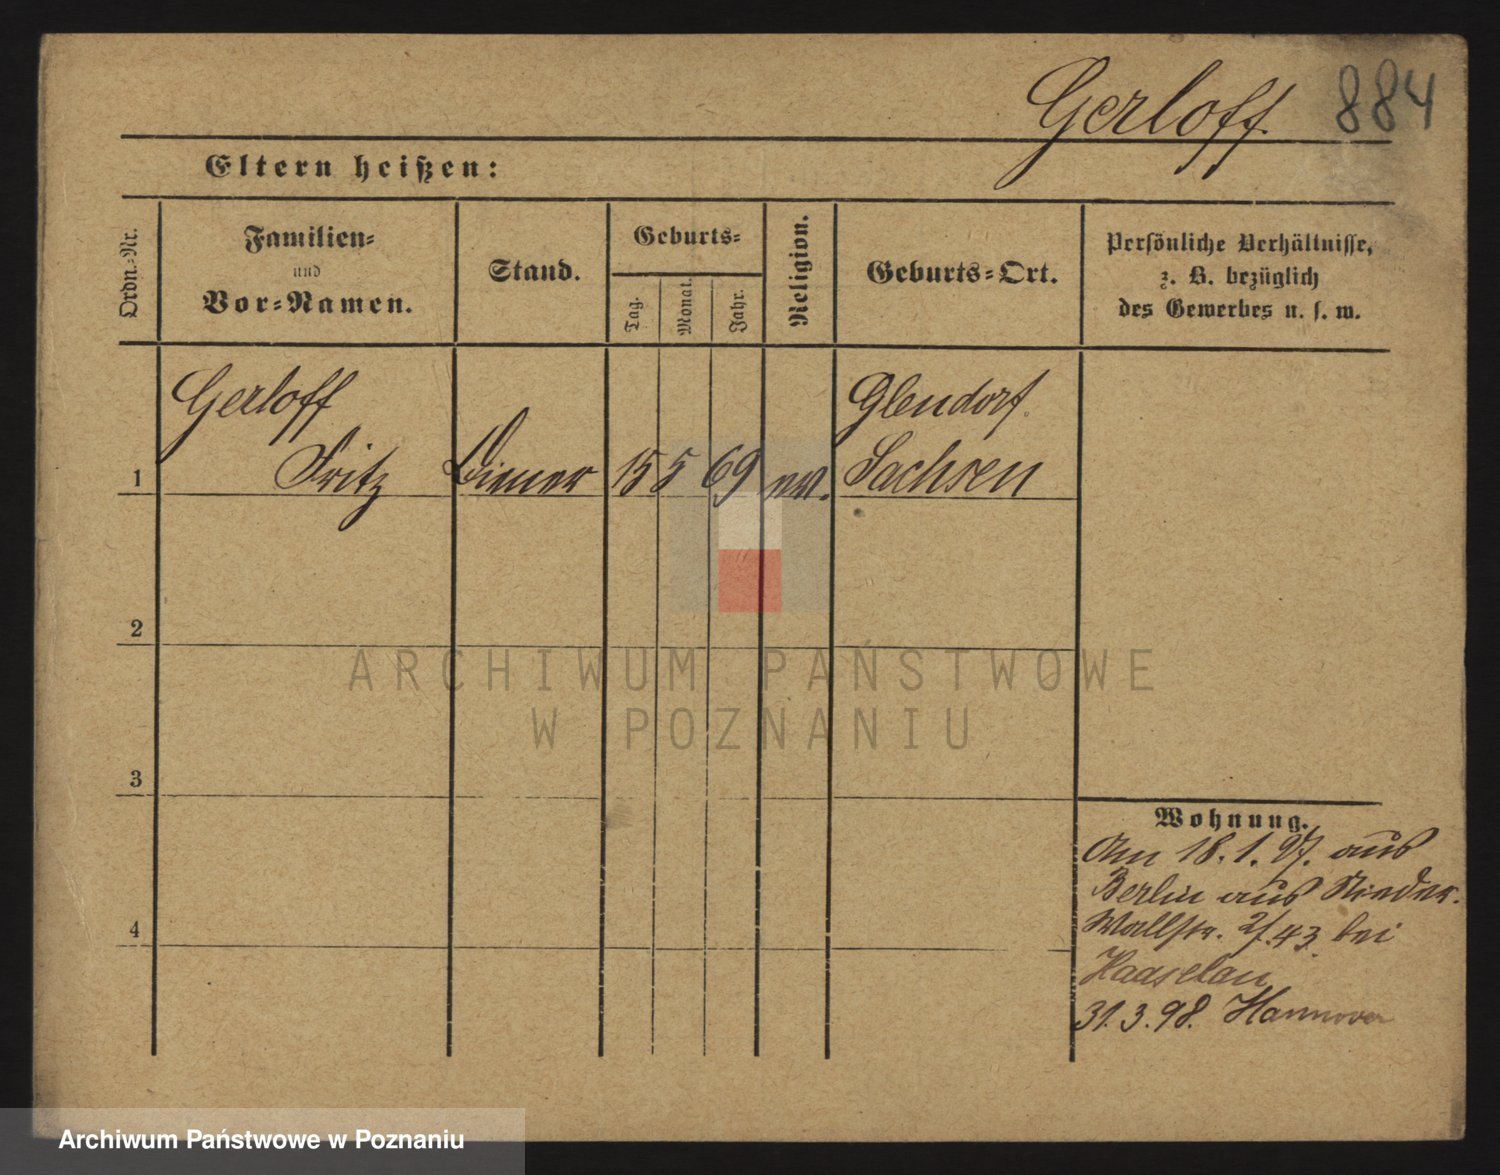 Gerloff. 884
Eltern heißen:
Ordn.-Nr.
Familien-
und
Vor-Namen.
Stand.
Geburts-
Tag.
Monat.
Jahr.
Religion.
Geburts-Ort.
Persönliche Verhältnisse,
z. B. bezüglich
des Gewerbes u. s. w.
Gerloff
Glendorf.
1 Fritz Diener 15 5 69 ev. Sachsen
2
3
4
Wohnung.
Am 18. 1. 97. aus
Berlin aus Nieder.
Wallstr. 2/.43 bei
31.3.98. Hannover
ARCHIWUM PAŃSTWOWE
W POZNANIU
Archiwum Państwowe w Poznaniu